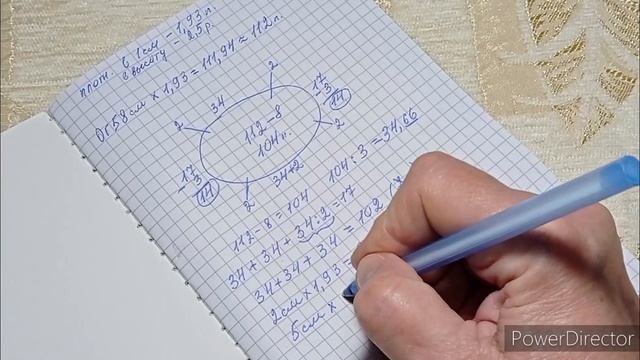 плот. в 1 см – 1,93 п.
в высоту – 2,5 р.
Ог 58 см × 1,93 = 111,94 ≈ 112 п.
2
34
2
17
3
14
2
112 – 8
104 п.
– 17
3
14
2
34+2
104 : 3 = 34,66
112 – 8 = 104
34 + 34 + 34 : 2 = 17
34 + 34 + 34 = 102
2 см × 1,93
5 см ×
PowerDirector